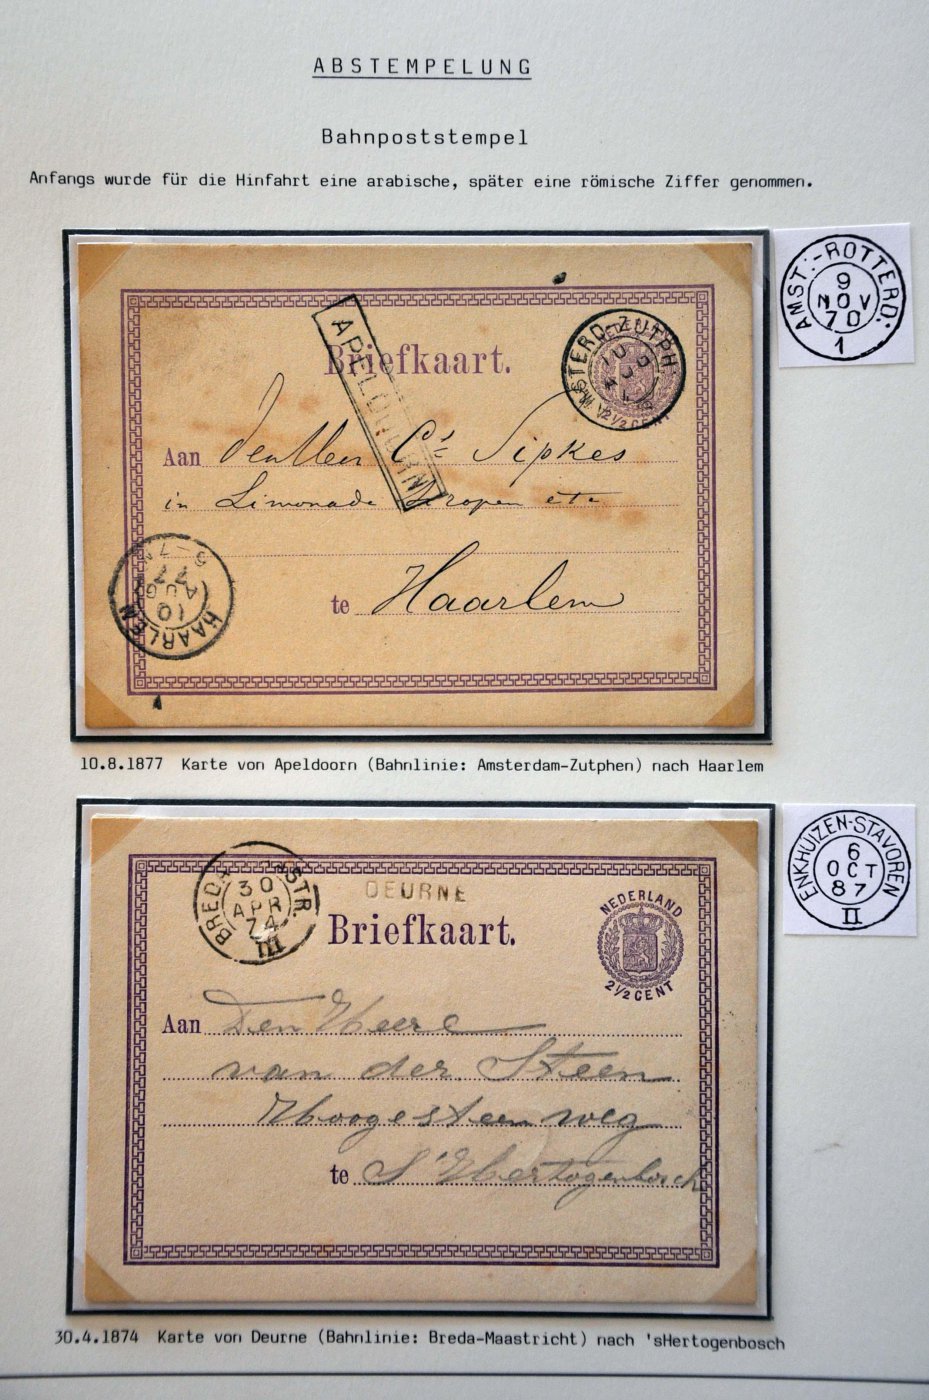 ABSTEMPELUNG
Bahnpoststempel
Anfangs wurde für die Hinfahrt eine arabische, später eine römische Ziffer genommen.
AMST:-ROTTERD:
9
NOV
70
1
APELDOORN
Briefkaart.
STERD-ZUTPH:
2½ CENT
Aan den Heer C' Sipkes
in Limonade Siropen etc
te Haarlem
HAARLEM
10
AUG
77
5-7
10.8.1877 Karte von Apeldoorn (Bahnlinie: Amsterdam-Zutphen) nach Haarlem
ENKHUIZEN-STAVOREN
6
OCT
87
II
BREDA STR.
30
APR
74
III
DEURNE
Briefkaart.
NEDERLAND
2½ CENT
Aan Den Heere
van der Steen
Hoogesteenweg
te S'Hertogenbosch
30.4.1874 Karte von Deurne (Bahnlinie: Breda-Maastricht) nach 'sHertogenbosch